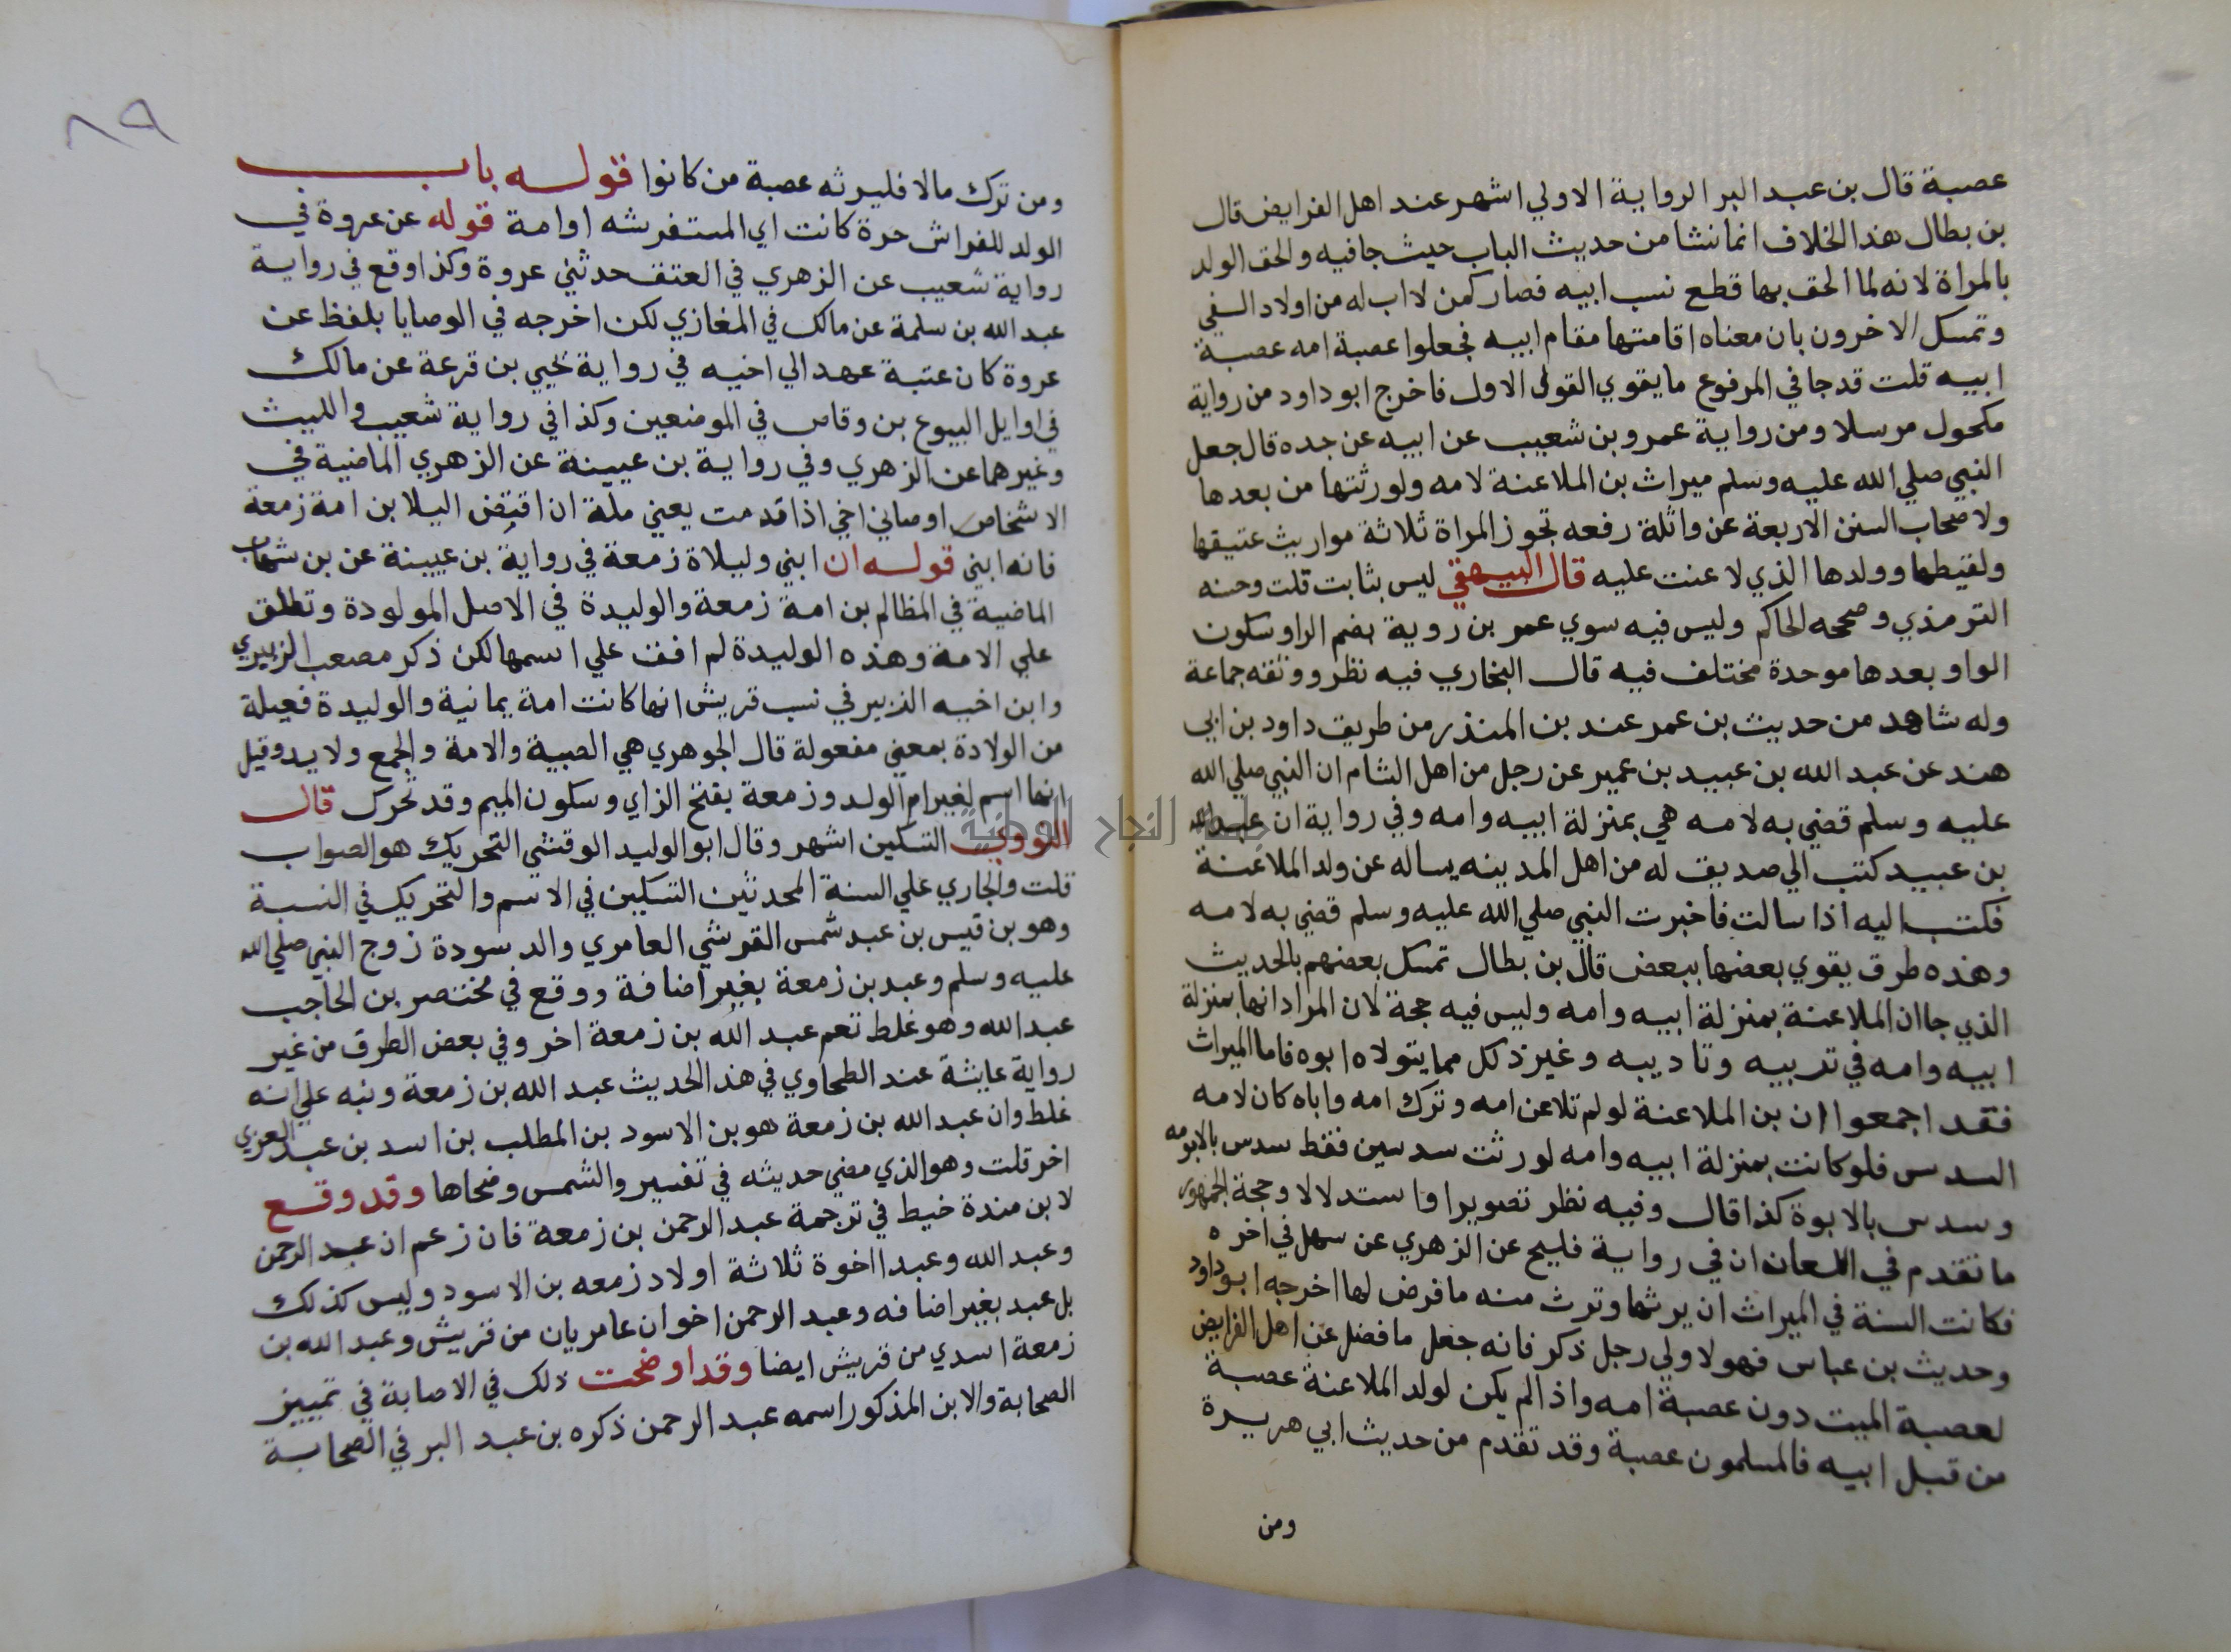 عصبة قال بن عبد البر الرواية الاولي اشهر عند اهل الفرايض قال
بن بطال هذا الخلاف انما نشا من حديث الباب حيث جا فيه والحق الولد
بالمراة لانه لما الحق بها قطع نسب ابيه فصار كمن لا اب له من اولاد السفي
وتمسك الاخرون بان معناه اقامتها مقام ابيه فجعلوا عصبة امه عصبة
ابيه قلت قد جا في المرفوع ما يقوي القول الاول فاخرج ابو داود من رواية
مكحول مرسلا ومن رواية عمرو بن شعيب عن ابيه عن جده قال جعل
النبي صلي الله عليه وسلم ميراث بن الملاعنة لامه ولورثتها من بعدها
ولاصحاب السنن الاربعة عن واثلة رفعه تحوز المراة ثلاثة مواريث عتيقها
ولقيطها وولدها الذي لاعنت عليه قال البيهقي ليس بثابت قلت وحسنه
الترمذي وصححه الحاكم وليس فيه سوي عمر بن روية بضم الرا وسكون
الواو بعدها موحدة مختلف فيه قال البخاري فيه نظر ووثقه جماعة
وله شاهد من حديث بن عمر عند بن المنذر من طريق داود بن ابي
هند عن عبد الله بن عبيد بن عمير عن رجل من اهل الشام ان النبي صلي الله
عليه وسلم قضي به لامه هي بمنزلة ابيه وامه وفي رواية ان عبد الله
بن عبيد كتب الي صديق له من اهل المدينه يساله عن ولد الملاعنة
فكتب اليه اذا سالت فاخبرت النبي صلي الله عليه وسلم قضي به لامه
وهذه طرق يقوي بعضها ببعض قال بن بطال تمسك بعضهم بالحديث
الذي جا ان الملاعنة بمنزلة ابيه وامه وليس فيه حجة لان المراد انها بمنزلة
ابيه وامه في تربيه وتاديبه وغير ذلك مما يتولاه ابوه فاما الميراث
فقد اجمعوا ان بن الملاعنة لو لم تلاعن امه وترك امه واباه كان لامه
السدس فلو كانت بمنزلة ابيه وامه لورثت سدسين فقط سدس بالامومه
وسدس بالابوة كذا قال وفيه نظر تصويرا واستدلالا وحجة الجمهور
ما تقدم في اللعان ان في رواية فليح عن الزهري عن سهل في اخره
فكانت السنة في الميراث ان يرثها وترث منه ما فرض لها اخرجه ابو داود
وحديث بن عباس فهو لاولي رجل ذكر فانه جعل ما فضل عن اهل الفرايض
لعصبة الميت دون عصبة امه واذا لم يكن لولد الملاعنة عصبة
من قبل ابيه فالمسلمون عصبة وقد تقدم من حديث ابي هريرة
ومن
٨٩
ومن ترك مالا فليرثه عصبة من كانوا قوله باب
الولد للفراش حرة كانت اي المستفرشه او امة قوله عن عروة في
رواية شعيب عن الزهري في العتق حدثني عروة وكذا وقع في رواية
عبد الله بن سلمة عن مالك في المغازي لكن اخرجه في الوصايا بلفظ عن
عروة كان عتبة عهد الي اخيه في رواية يحيي بن قزعة عن مالك
في اوايل البيوع بن وقاص في الموضعين وكذا في رواية شعيب والليث
وغيرهما عن الزهري وفي رواية بن عيينة عن الزهري الماضية في
الاشخاص اوصاني اخي اذا قدمت يعني ملة ان اقتض اليلا بن امة زمعة
فانه ابني قوله ان ابني وليلاة زمعة في رواية بن عيينة عن بن شهاب
الماضية في المظالم بن امة زمعة والوليدة في الاصل المولودة وتطلق
علي الامة وهذه الوليدة لم اقف علي اسمها لكن ذكر مصعب الزبيري
وابن اخيه الزبير في نسب قريش انها كانت امة يمانية والوليدة فعيلة
من الولادة بمعني مفعولة قال الجوهري هي الصبية والامة والجمع ولايد وقيل
انها اسم لغير ام الولد وزمعة بفتح الزاي وسكون الميم وقد تحرك قال
النووي التسكين اشهر وقال ابو الوليد الوقشي التحريك هو الصواب
قلت والجاري علي السنة المحدثين التسكين في الاسم والتحريك في النسبة
وهو بن قيس بن عبد شمس القرشي العامري والد سودة زوج النبي صلي الله
عليه وسلم وعبد بن زمعة بغير اضافة ووقع في مختصر بن الحاجب
عبد الله وهو غلط نعم عبد الله بن زمعة اخر وفي بعض الطرق من غير
رواية عايشة عند الطحاوي في هذا الحديث عبد الله بن زمعة ونبه علي انه
غلط وان عبد الله بن زمعة هو بن الاسود بن المطلب بن اسد بن عبد العزي
اخر قلت وهو الذي مضي حديثه في تفسير والشمس وضحاها وقد وقع
لابن مندة خبط في ترجمة عبد الرحمن بن زمعة فان زعم ان عبد الرحمن
وعبد الله وعبدا اخوة ثلاثة اولاد زمعه بن الاسود وليس كذلك
بل عبد بغير اضافه وعبد الرحمن اخوان عامريان من قريش وعبد الله بن
زمعة اسدي من قريش ايضا وقد اوضحت ذلك في الاصابة في تمييز
الصحابة والابن المذكور اسمه عبد الرحمن ذكره بن عبد البر في الصحابة
جامعة النجاح الوطنية